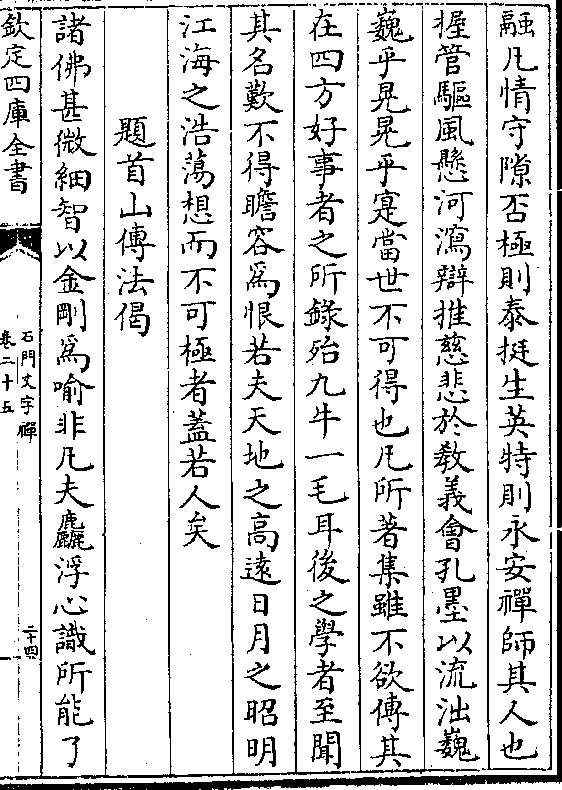 融凡情守隙否極則泰挺生英特則永安禪師其人也
握管驅風懸河瀉辯推慈悲於教義會孔墨以流泏巍
巍乎晃晃乎寔當世不可得也凡所著集雖不欲傳其
在四方好事者之所錄殆九牛一毛耳後之學者至聞
其名歎不得瞻容爲恨若夫天地之高遠日月之昭明
江海之浩蕩想而不可極者蓋若人矣
題首山傳法偈
諸佛甚微細智以金剛爲喻非凡夫麤浮心識所能了
欽定四庫全書
石門文字禪
卷二十五
二十四